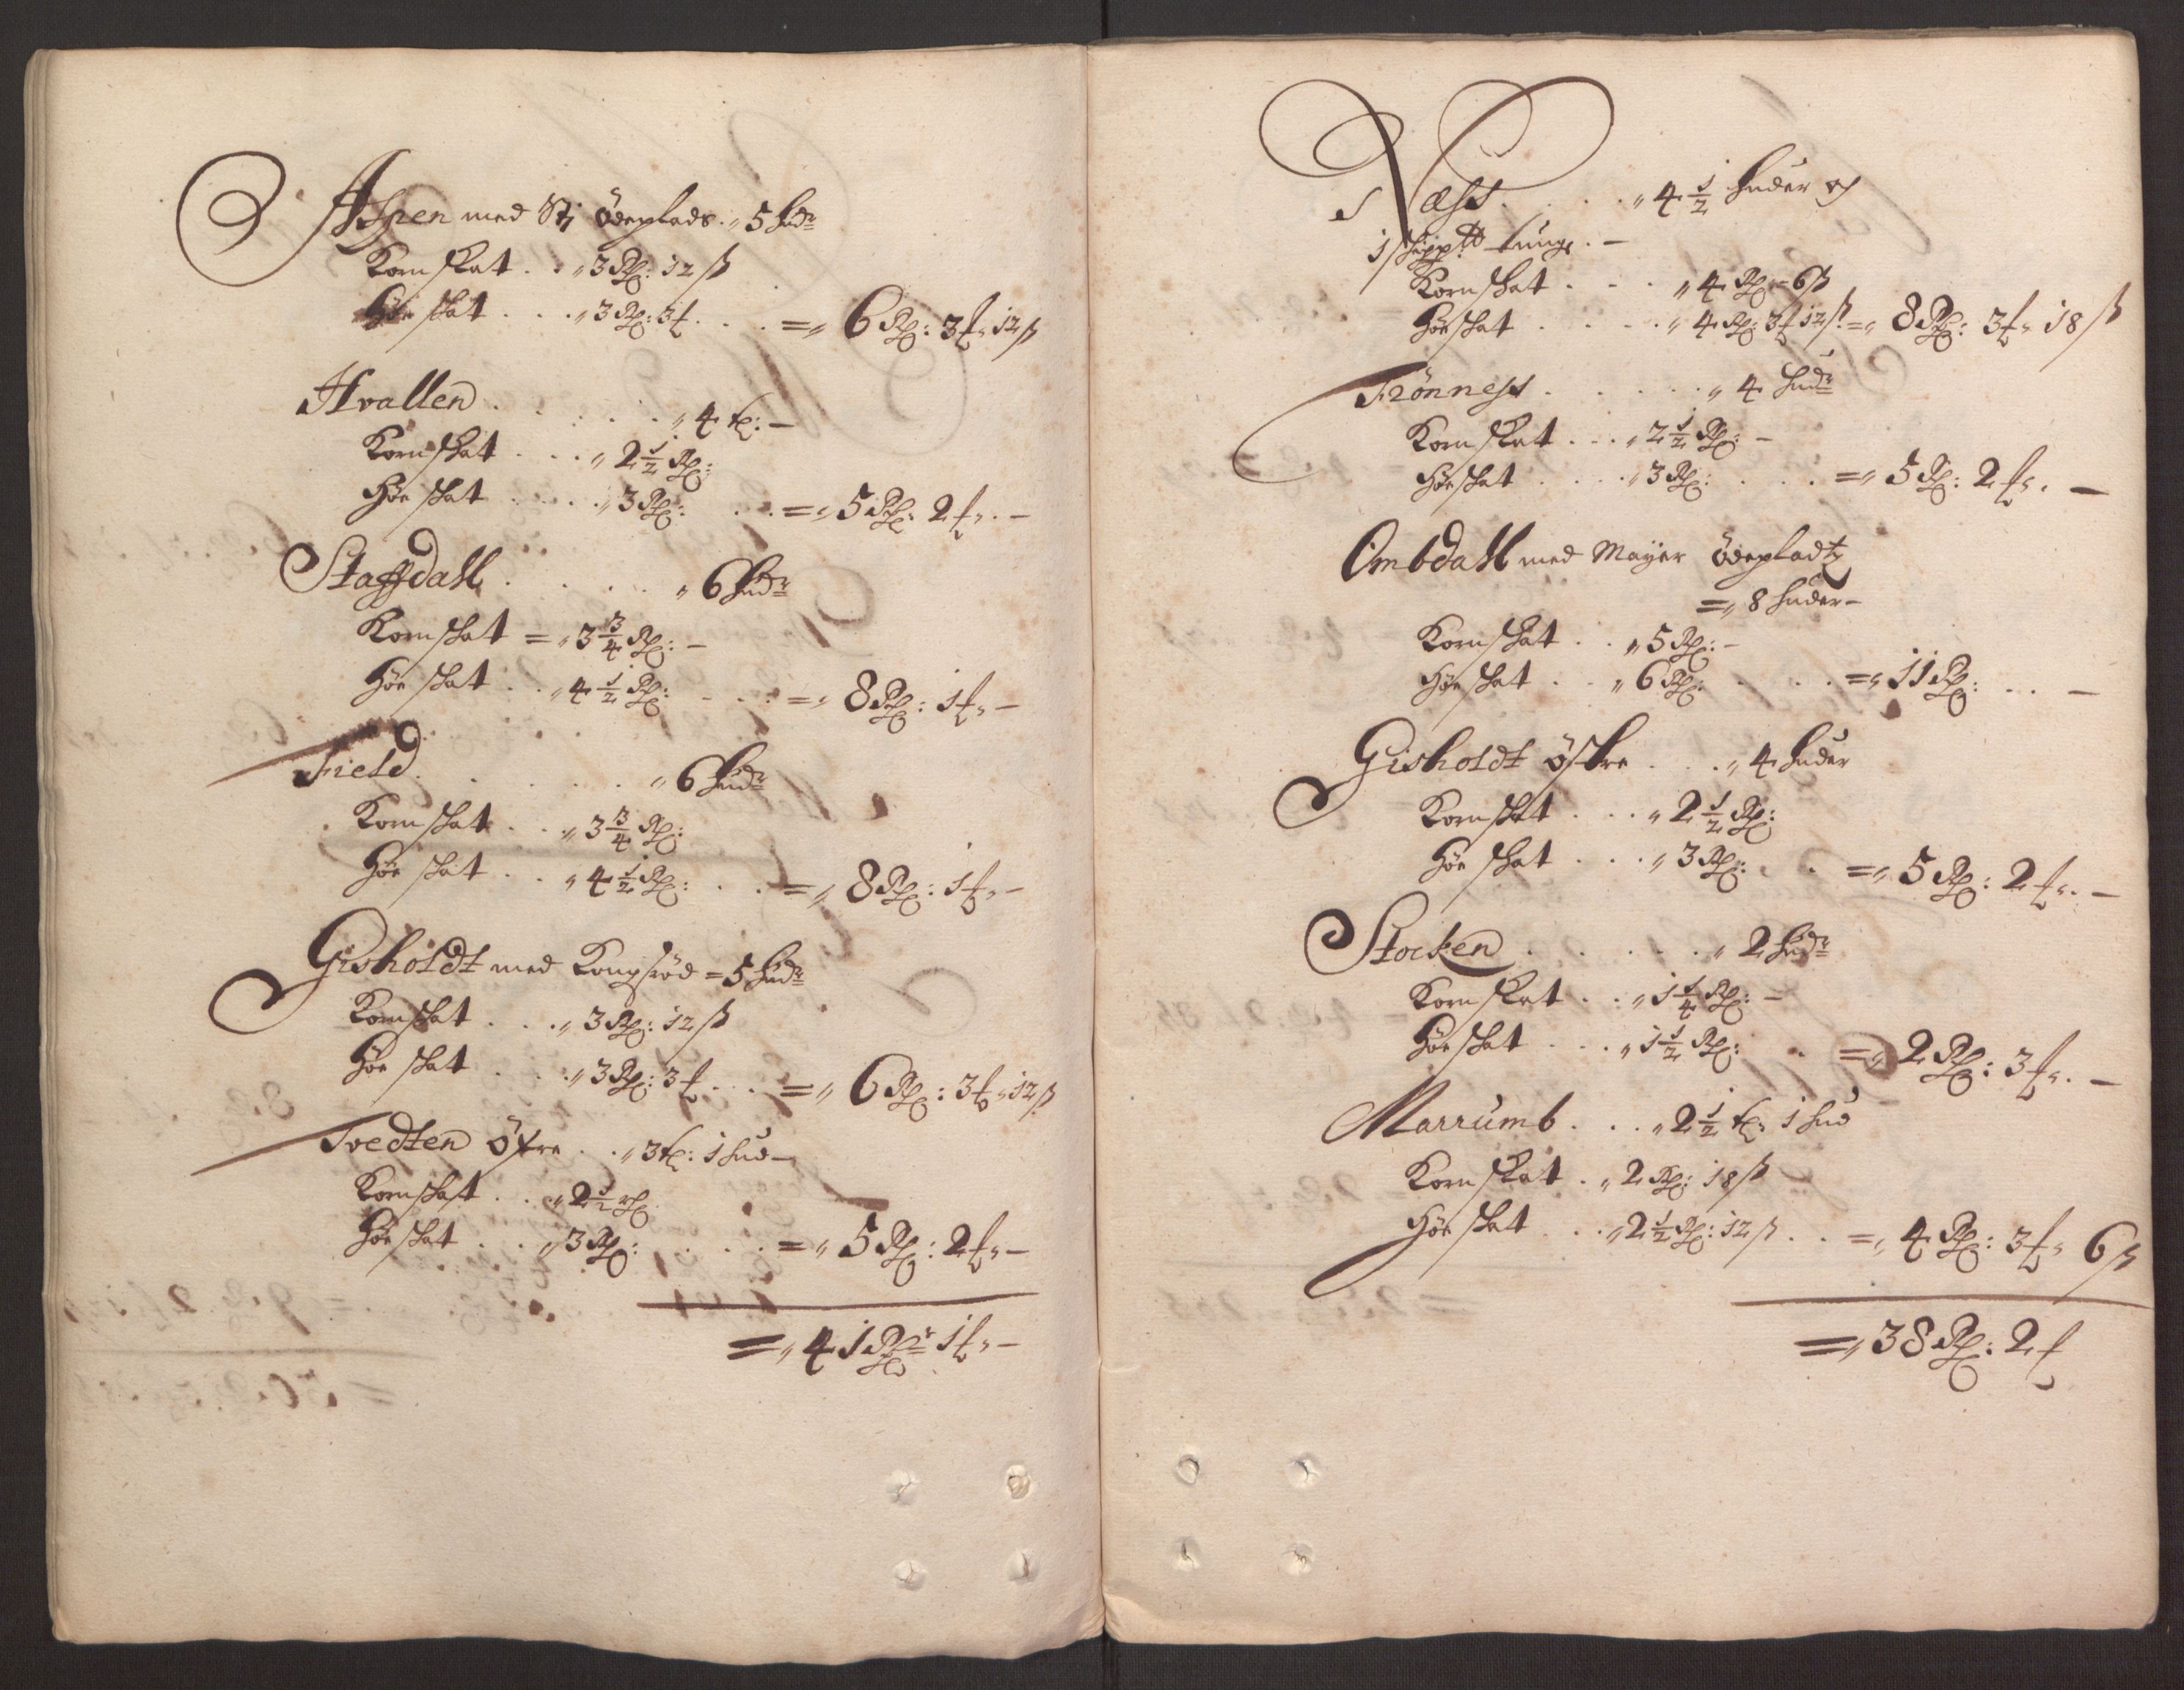 Aspen med Sti ödeplads . " 5 hudr
Kornskat . . " 3 Rd: 12 ß
Höe skat . . . " 3 Rd: 3 f . . . = " 6 Rd: 3 f " 12 ß
Hvallen . . . . . " 4 tl: —
Kornskat . . . " 2 1/2 Rd:
Höe skat . . . . " 3 Rd: . . = " 5 Rd: 2 f " . —
Staffdall . . . . . " 6 hudr
Kornskat = " 3 3/4 Rd: —
Höe skat . . " 4 1/2 Rd: . . . = " 8 Rd: 1 f " —
Field . . . . . . " 6 hudr
Kornskat . . " 3 3/4 Rd:
Höe skat . . " 4 1/2 Rd: . . = " 8 Rd: 1 f " —
Gisholdt med Kongsröd = 5 hudr
Kornskat . . . " 3 Rd: 12 ß
Höe skat . . . " 3 Rd: 3 f . . . = " 6 Rd: 3 f " 12 ß
Tvedten östre . . " 3 tl: 1 hud —
Kornskat . . " 2 1/2 Rd
Höe skat . . " 3 Rd: . . . . = " 5 Rd: 2 f " —
= " 41 Rdr 1 f " —
Næss . . . . " 4 1/2 huder och
1 skippd tunge . —
Kornskat . . . " 4 Rd: - 6 ß
Höeskat . . . . " 4 Rd: 3 f 12 ß = " 8 Rd: 3 f " 18 ß
Trönness . . . . . " 4 hudr
Kornskat . . . " 2 1/2 Rd: —
Höeskat . . . . " 3 Rd: . . . = " 5 Rd: 2 f " . —
Ombdall med Mayer ödepladtz
= " 8 huder —
Kornskat . . " 5 Rd: —
Höe skat . . " 6 Rd: . . . = " 11 Rd: . . —
Gisholdt östre . . . " 4 huder
Kornskat . . . " 2 1/2 Rd:
Höe skat . . . " 3 Rd: . . = " 5 Rd: 2 f " . —
Stocken . . . . . " 2 hudr
Kornskat . . " 1 1/4 Rd: —
Höe skat . . . " 1 1/2 Rd: . . = " 2 Rd: 3 f " . —
Marrumb . . . " 2 1/2 tl: 1 hud
Kornskat . " 2 Rd: 18 ß
Höe skat . . " 2 1/2 Rd: 12 ß . . = " 4 Rd: 3 f " 6 ß
= " 38 Rd: 2 f